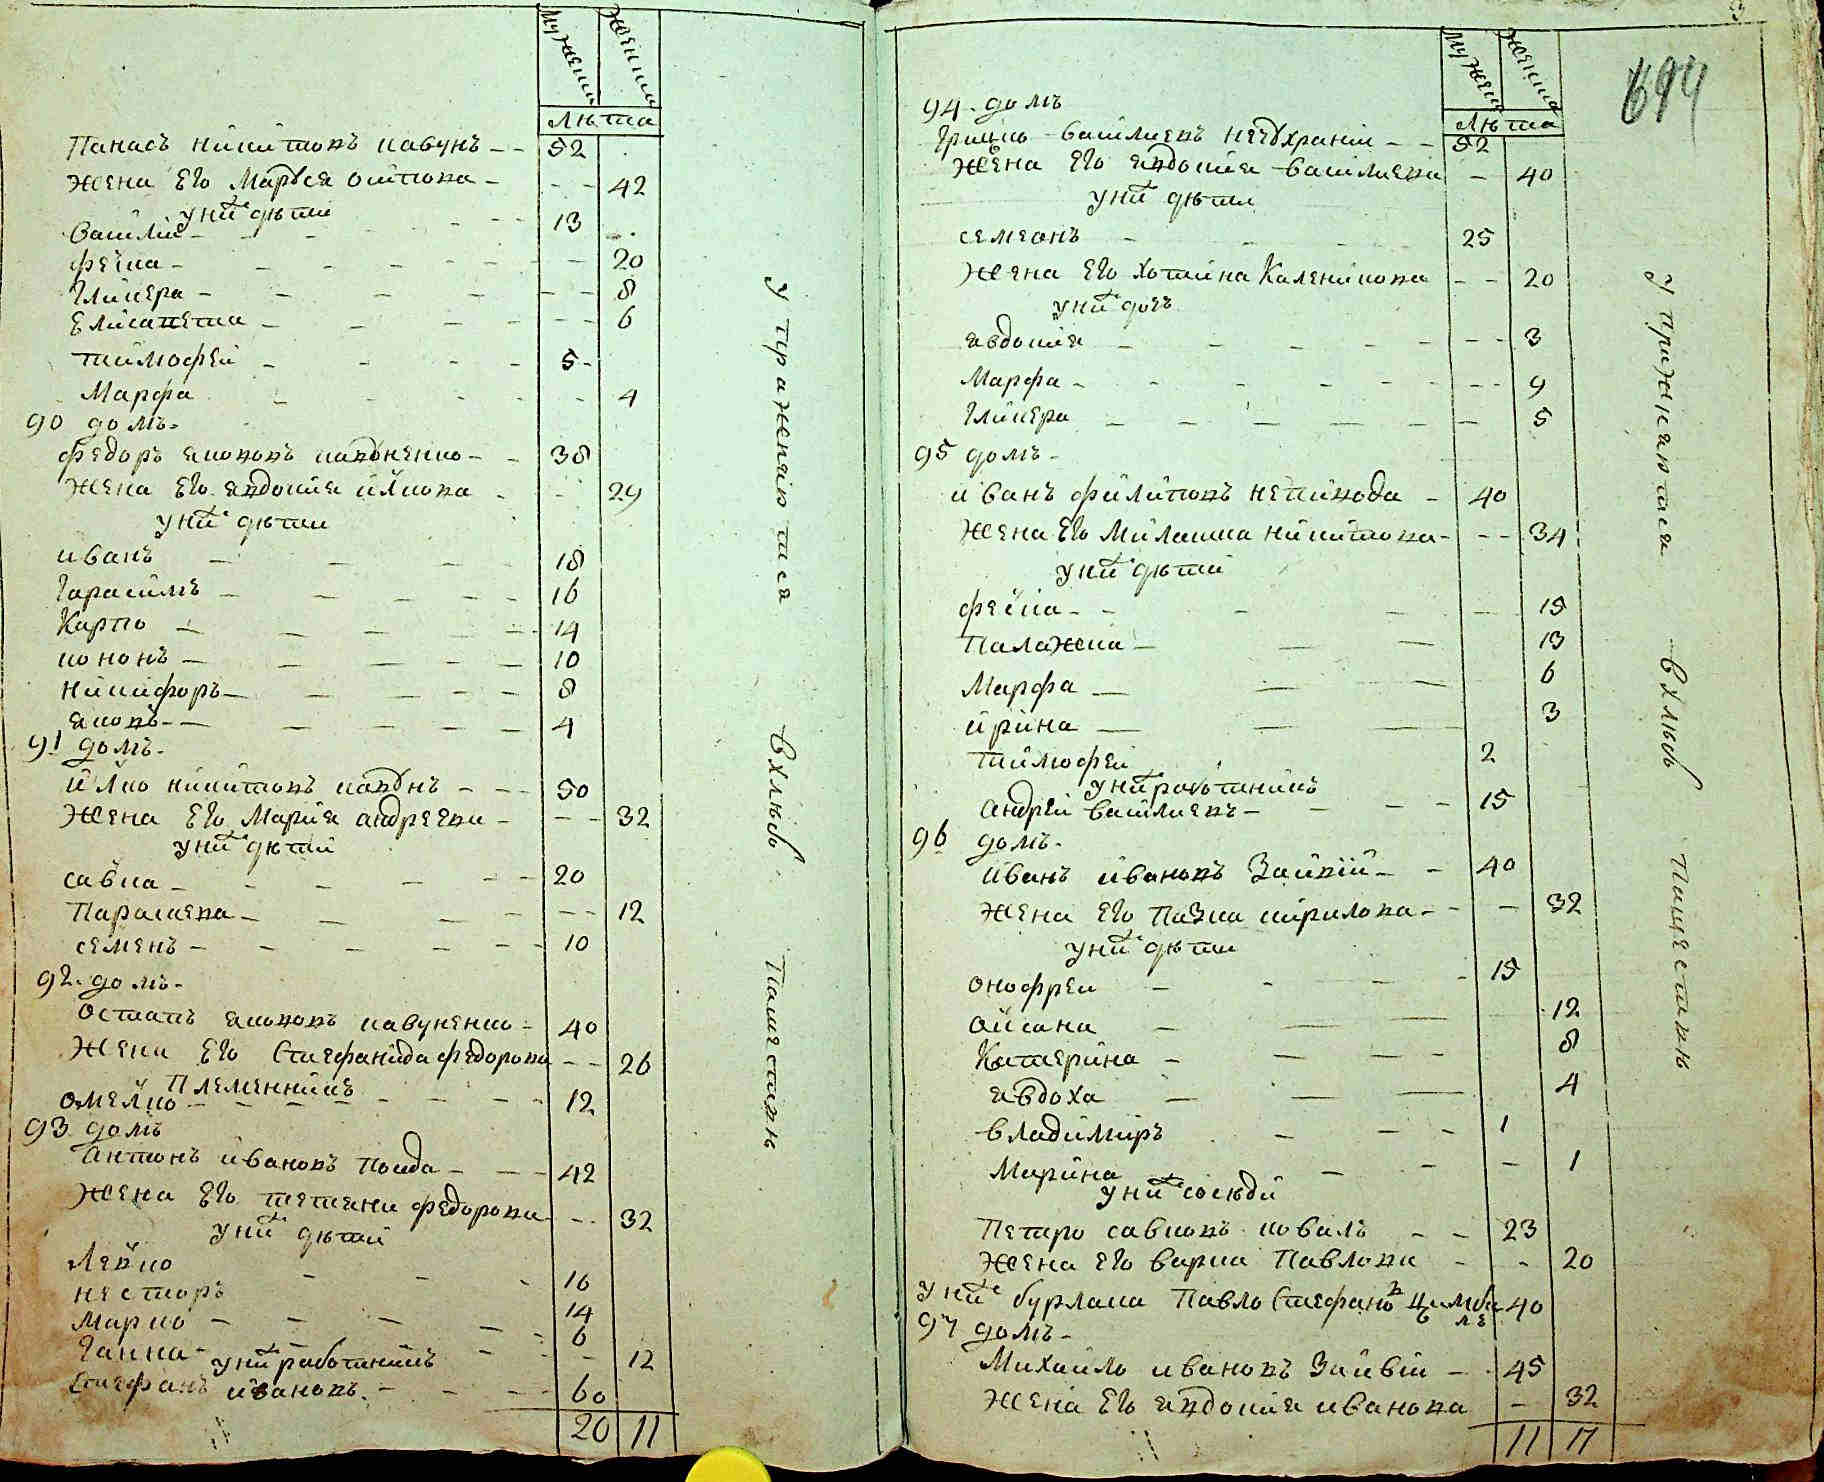 мужеска женска
лѣта
Панасъ никитовъ кавунъ 52
Жена Его Маруся 42
у них дѣти
василій 13
феска 20
Гликера 8
Елисавета 6
тимофей 5
Марфа 4
90 домъ
федоръ якововъ кавуненко 38
жена Его явдокия 29
у них дѣти
иванъ 18
Гарасимъ 16
Карпо 14
кононъ 10
никифоръ 8
яковъ 4
91 домъ
илко никитовъ кавунъ 50
Жена Его Мария андреева 32
у них дѣти
савка 20
Параскева 12
семенъ 10
92 домъ
остапъ якововъ кавуненко 40
Жена Его Стефанида федорова 26
Племенникъ
омелко 12
93 домъ
антонъ ивановъ 42
Жена Его тетяна федорова 32
у них дѣти
Левко 16
несторъ 14
Марко 6
Ганна 12
у них работникъ
Стефанъ ивановъ 60
20 11
упражняютися в хлѣбопашествѣ
694
мужеска женска
лѣта
94 домъ
Грицко василиевъ 52
жена Его явдокия василиева 40
у них дѣти
семеонъ 25
Жена Его хотина Каленикова 20
у них
явдокия 3
Марфа 9
Гликера 5
95 домъ
иванъ филиповъ непивода 40
жена Его Миланка никитова 34
у них дѣти
феска 15
Палажка 13
Марфа 6
ирина 3
тимофей 2
у них работникъ
андрей василиевъ 15
96 домъ
иванъ ивановъ Заивий 40
жена Его Пазка кирилова 32
у них дѣти
онофрей 15
оксана 12
Катерина 8
явдоха 4
владимиръ 1
Марина 1
у них сосѣди
Петро савковъ коваль 23
жена Его варка Павлова 20
у них бурлака Павло Стефановъ 40
97 домъ
Михайло ивановъ Заивій 45
Жена Его явдокия иванова 32
11 17
упражняютися в хлѣбопашествѣ